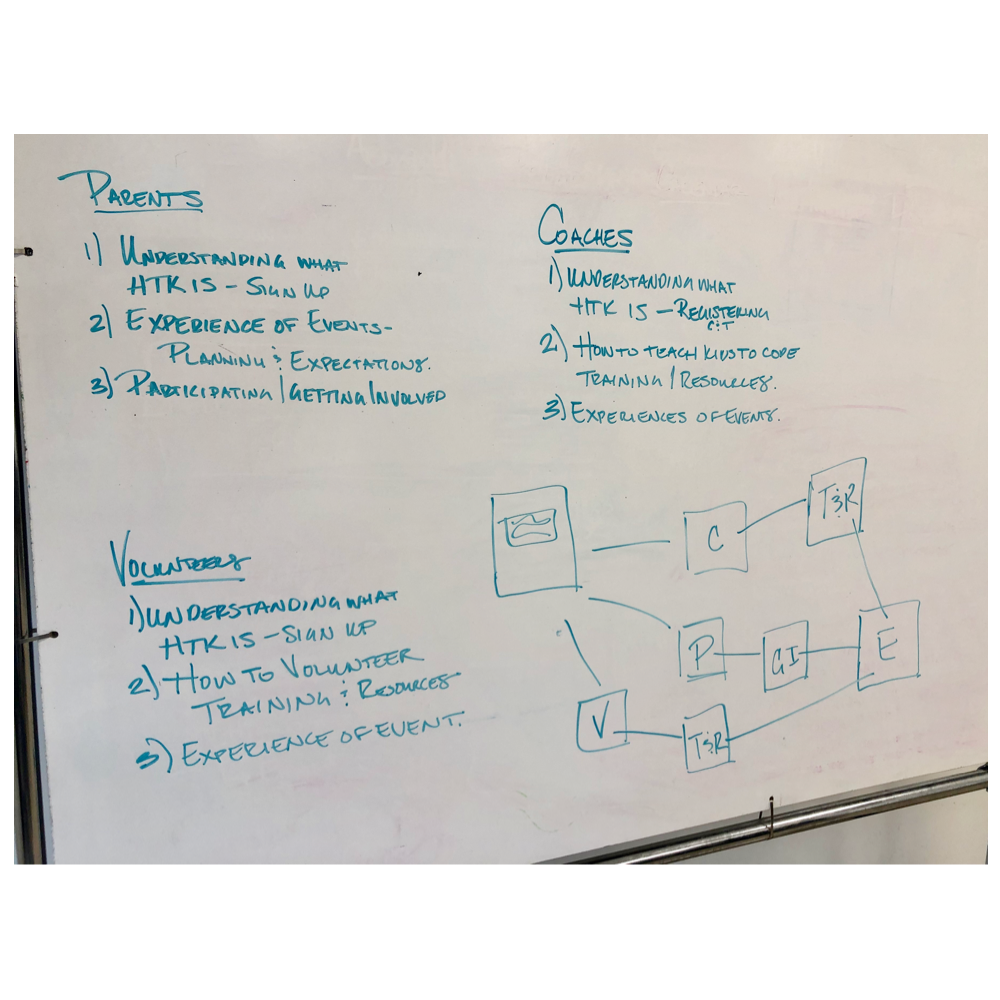 PARENTS
1) UNDERSTANDING WHAT
HTK IS - SIGN UP
2) EXPERIENCE OF EVENTS-
PLANNING & EXPECTATIONS.
3) PARTICIPATING/GETTING INVOLVED
COACHES
1) UNDERSTANDING WHAT
HTK IS - REGISTERING
2) HOW TO TEACH KIDS TO CODE
TRAINING/RESOURCES.
3) EXPERIENCES OF EVENTS.
VOLUNTEERS
1) UNDERSTANDING WHAT
HTK IS - SIGN UP
2) HOW TO VOLUNTEER
TRAINING & RESOURCES
3) EXPERIENCE OF EVENT.
C
T&R
P
GI
E
V
T&R